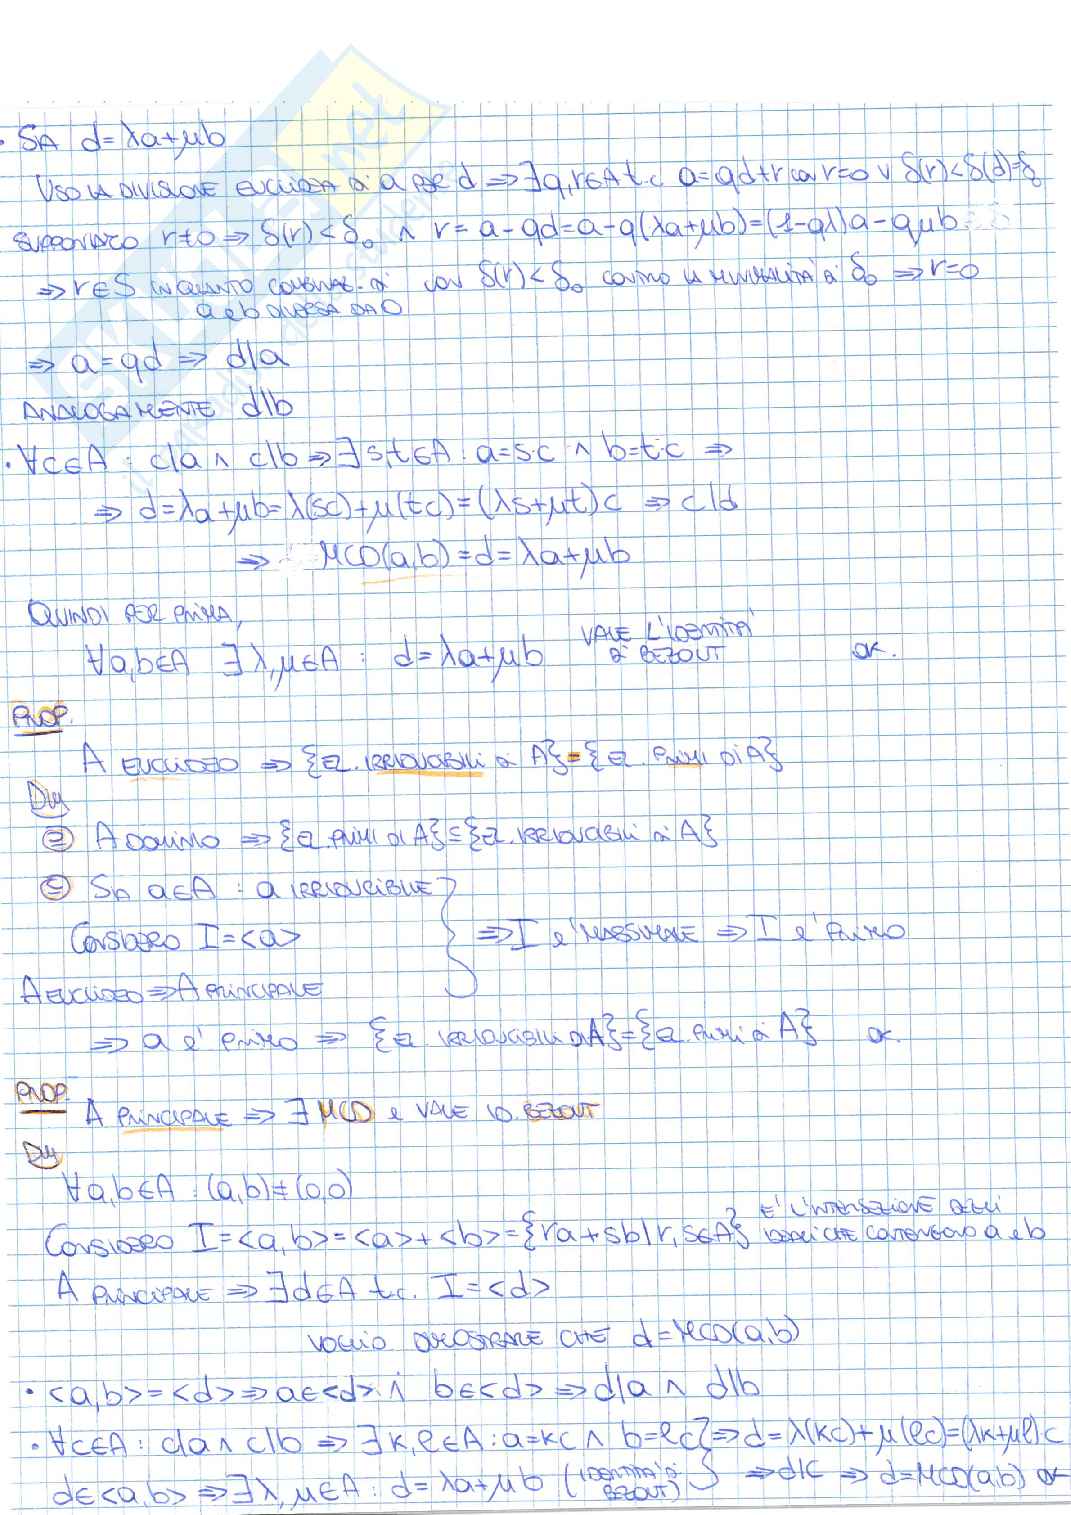 • SIA d=λa+μb
USO LA DIVISIONE EUCLIDEA DI a PER d ⇒ ∃q,r∈A t.c. a=qd+r con r=0 ∨ δ(r)<δ(d)=δ₀
SUPPONIAMO r≠0 ⇒ δ(r)<δ₀ ∧ r=a-qd=a-q(λa+μb)=(1-qλ)a-qμb
⇒ r∈S IN QUANTO COMBINAZ. DI CON δ(r)<δ₀ CONTRO LA MINIMALITÀ DI δ₀ ⇒ r=0
a e b DIVERSA DA 0
⇒ a=qd ⇒ d|a
ANALOGAMENTE d|b
• ∀c∈A : c|a ∧ c|b ⇒ ∃s,t∈A : a=s·c ∧ b=t·c ⇒
⇒ d=λa+μb=λ(sc)+μ(tc)=(λs+μt)c ⇒ c|d
⇒ MCD(a,b)=d=λa+μb
QUINDI PER PRIMA,
∀a,b∈A ∃λ,μ∈A : d=λa+μb VALE L'IDENTITÀ DI BEZOUT OK.
PROP.
A EUCLIDEO ⇒ {EL. IRRIDUCIBILI DI A}={EL. PRIMI DI A}
DIM
⊇ A DOMINIO ⇒ {EL. PRIMI DI A}⊆{EL. IRRIDUCIBILI DI A}
⊆ SIA a∈A : a IRRIDUCIBILE
CONSIDERO I=<a> ⇒ I E' MASSIMALE ⇒ I E' PRIMO
A EUCLIDEO ⇒ A PRINCIPALE
⇒ a E' PRIMO ⇒ {EL. IRRIDUCIBILI DI A}={EL. PRIMI DI A} OK.
PROP.
A PRINCIPALE ⇒ ∃ MCD e VALE ID. BEZOUT
DIM
∀a,b∈A : (a,b)≠(0,0)
CONSIDERO I=<a,b>=<a>+<b>={ra+sb|r,s∈A} E' L'INTERSEZIONE DEGLI IDEALI CHE CONTENGONO a e b
A PRINCIPALE ⇒ ∃d∈A t.c. I=<d>
VOGLIO DIMOSTRARE CHE d=MCD(a,b)
• <a,b>=<d> ⇒ a∈<d> ∧ b∈<d> ⇒ d|a ∧ d|b
• ∀c∈A : c|a ∧ c|b ⇒ ∃k,l∈A : a=kc ∧ b=lc} ⇒ d=λ(kc)+μ(lc)=(λk+μl)c
d∈<a,b> ⇒ ∃λ,μ∈A : d=λa+μb (IDENTITÀ DI BEZOUT) ⇒ d|c ⇒ d=MCD(a,b) OK